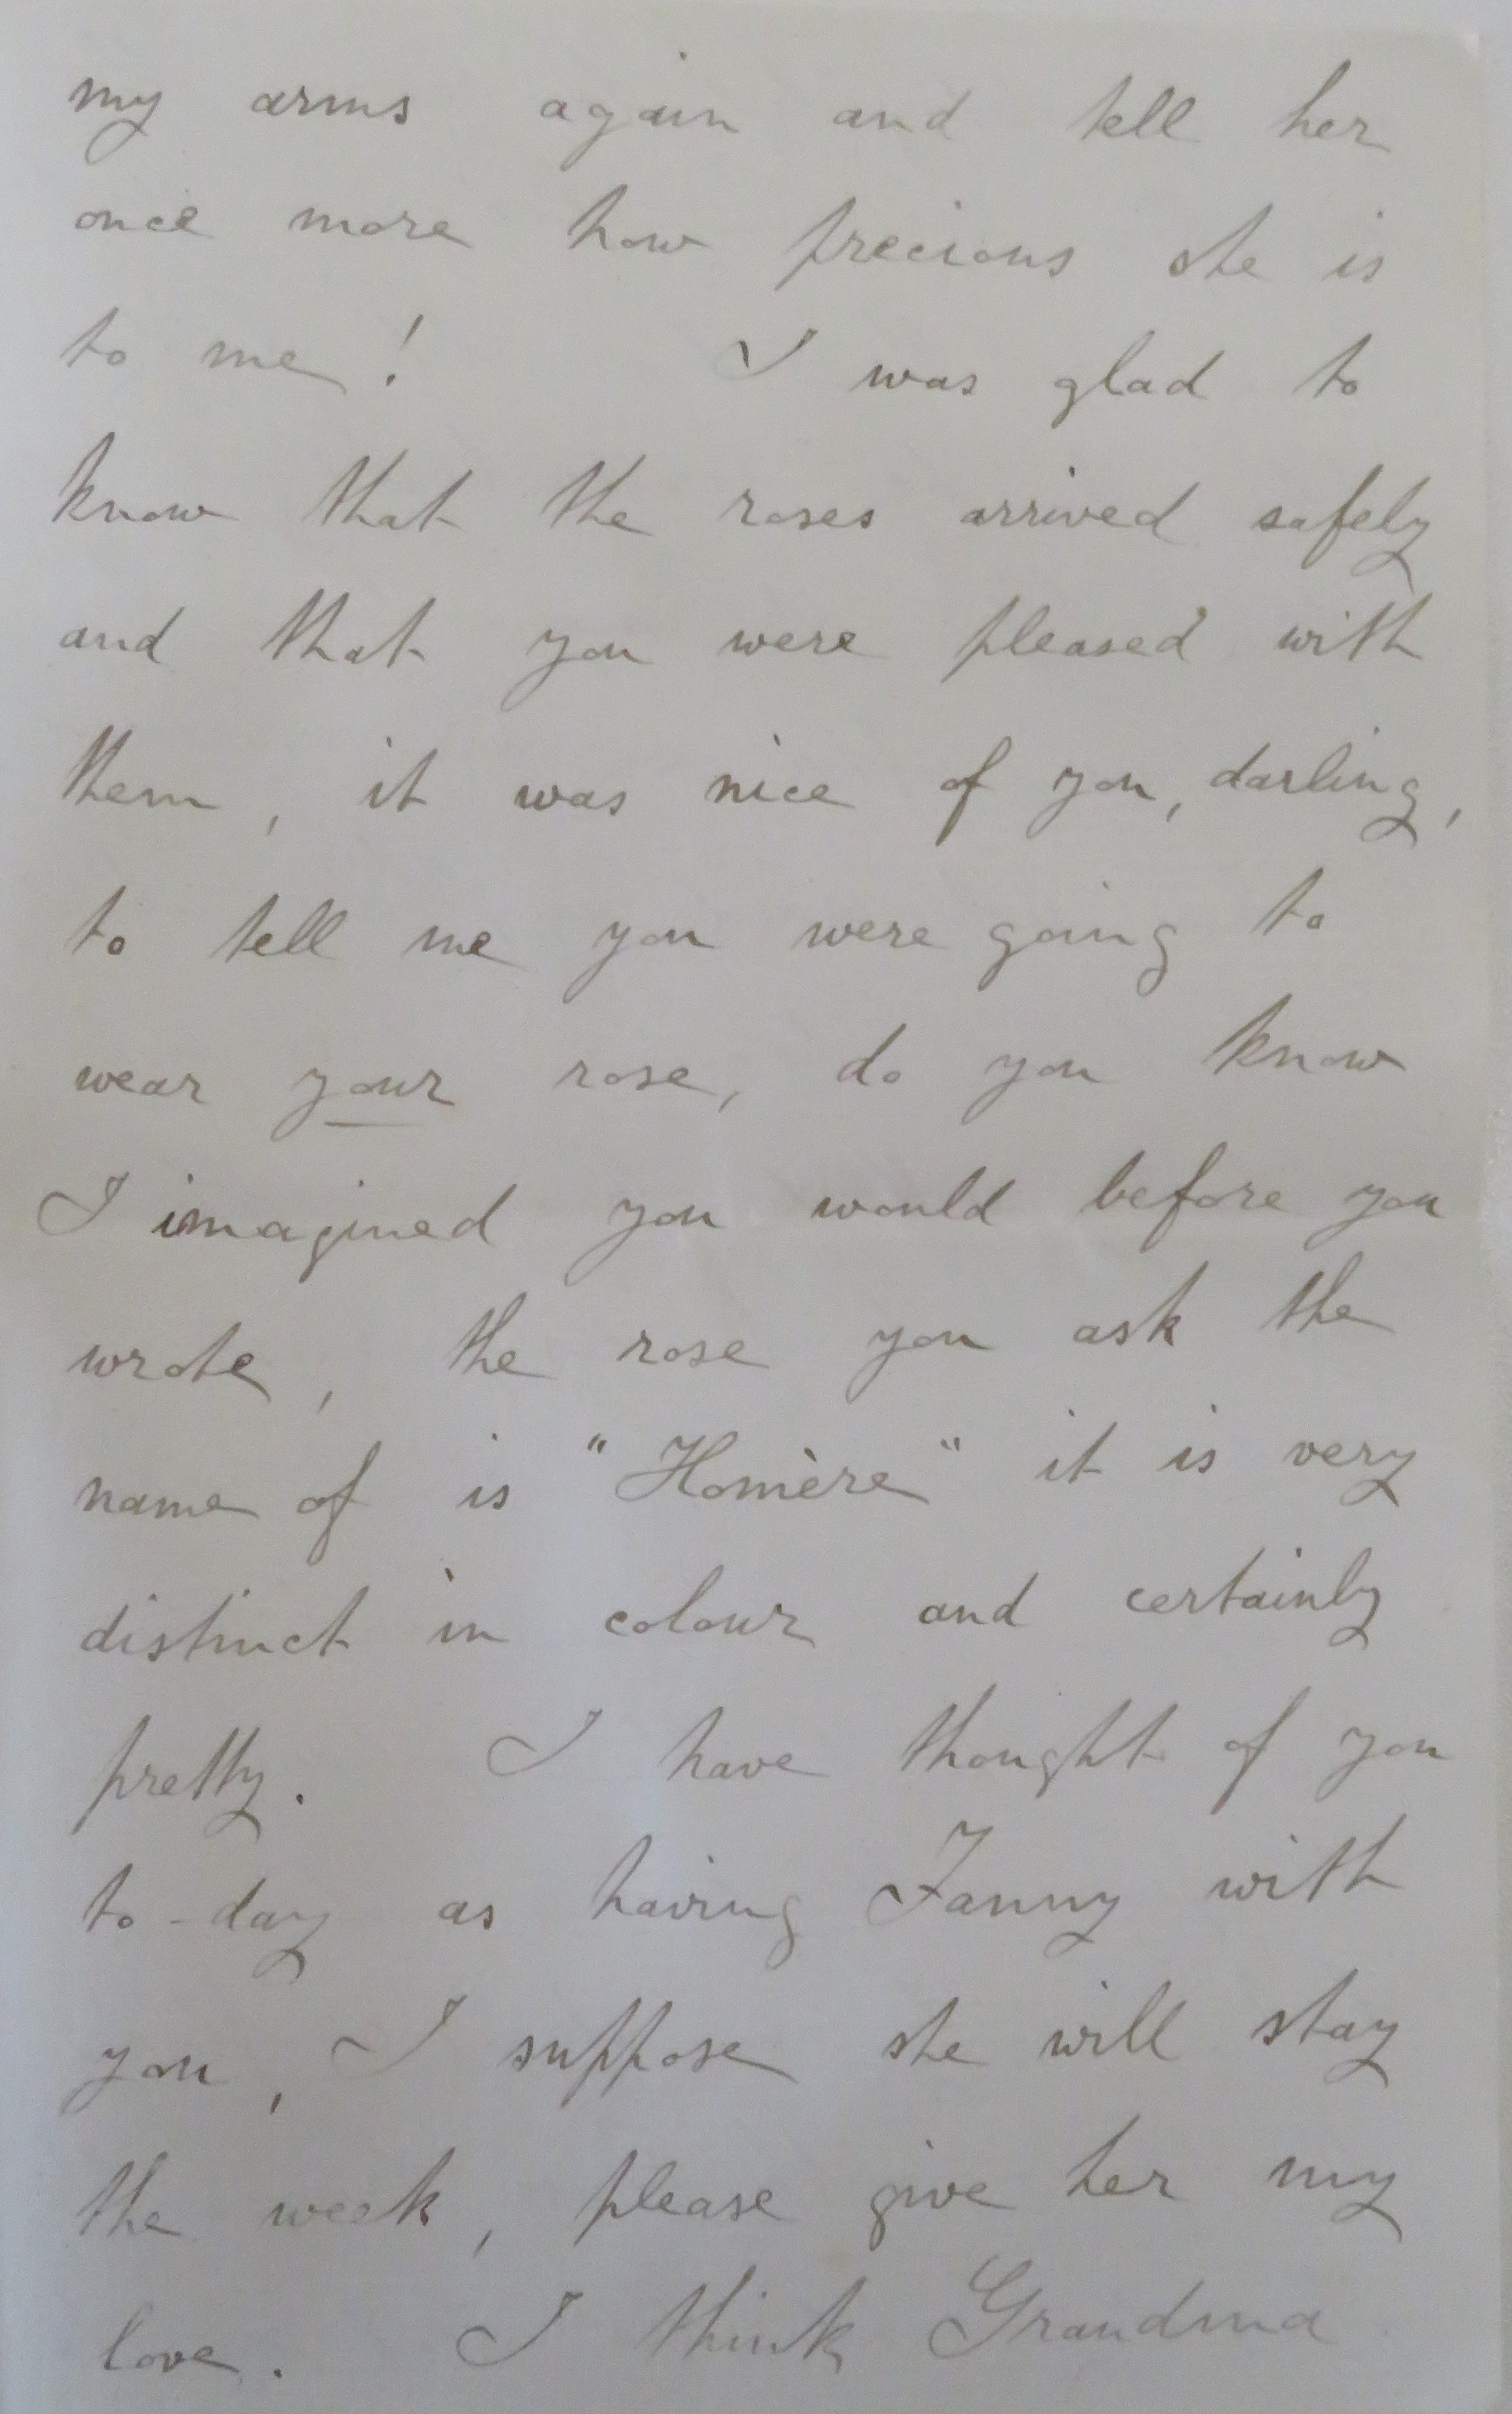 my arms again and tell her
once more how precious she is
to me! I was glad to
know that the roses arrived safely
and that you were pleased with
them, it was nice of you, darling,
to tell me you were going to
wear your rose, do you know
I imagined you would before you
wrote, the rose you ask the
name of is "Homère" it is very
distinct in colour and certainly
pretty. I have thought of you
to-day as having Fanny with
you, I suppose she will stay
the week, please give her my
love. I think Grandma